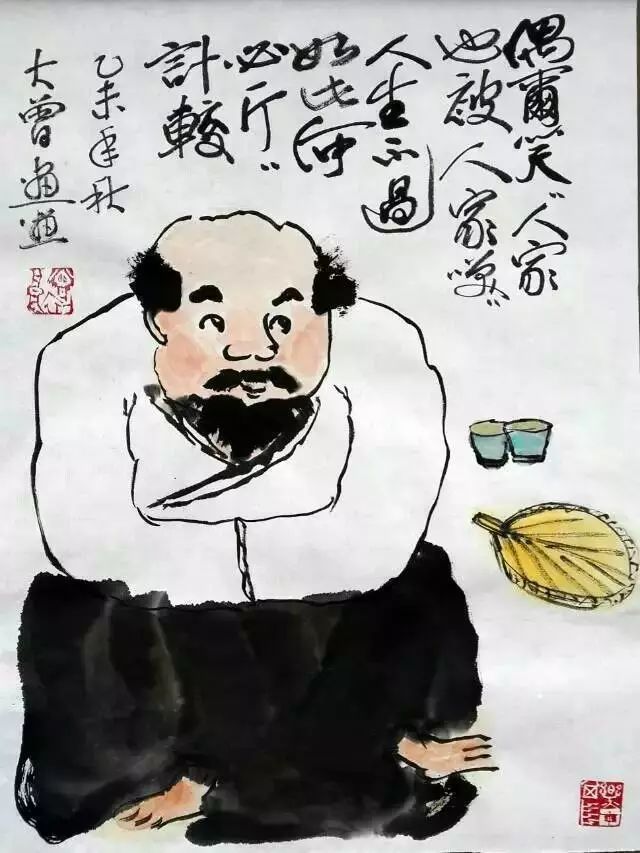 偶爾笑〃人家
也被人家〃
人生不過
如此何
必斤〃
計較
乙未年秋
大曾